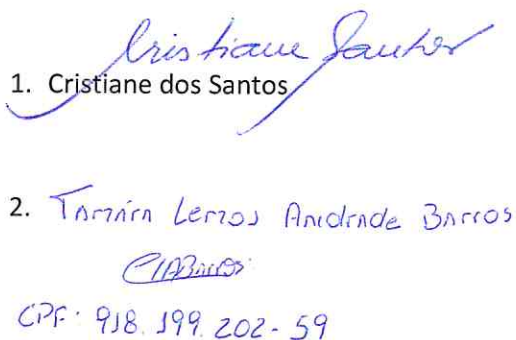 Cristiane Santos
1. Cristiane dos Santos
2. Tamára Lemos Andrade Barros
CPF: 918.199.202-59